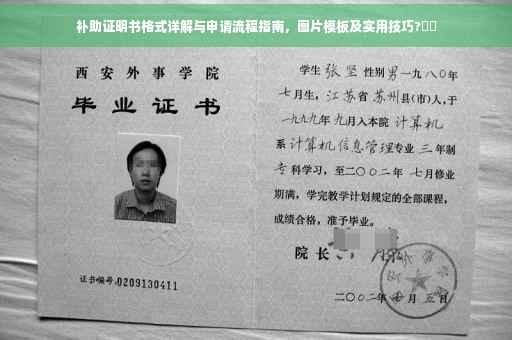 补助证明书格式详解与申请流程指南，图片模板及实用技巧?
西安外事学院
毕业证书
证书编号:0209130411
学生张坚性别男一九八〇年
七月生，江苏省苏州县(市)人，于
一九九九年九月入本院计算机
系计算机信息管理专业三年制
专科学习，至二〇〇二年七月修业
期满，学完教学计划规定的全部课程，
成绩合格，准予毕业。
院长
二〇〇二年 月五日